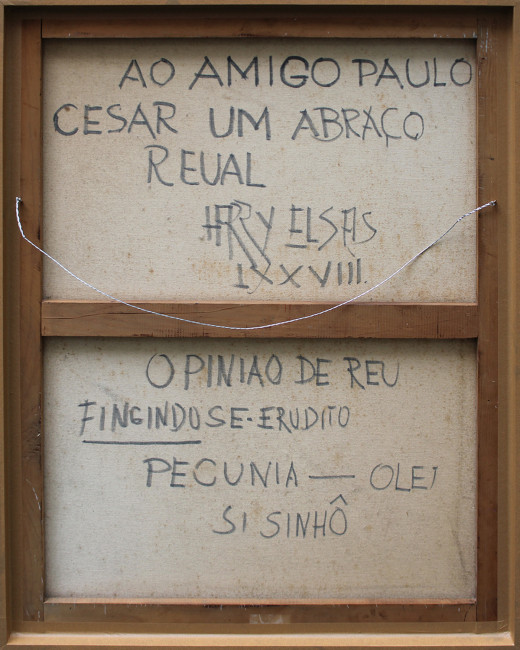 AO AMIGO PAULO
CESAR UM ABRAÇO
REUAL
HARRY ELSAS
LXXVIII.
OPINIAO DE REU
FINGINDO SE-ERUDITO
PECUNIA — OLEJ
SI SINHÔ